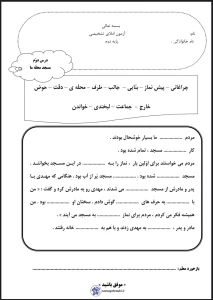 بسمه تعالی
نام:
آزمون املای تشخیصی
نام خانوادگی:
پایه دوم
درس دوم
مسجد محله ما
چراغانی - پیش نماز - بنایی - جالب - طرف - محله ی - دقت - حوض
خارج - جماعت - لبخندی - خواندن
مردم ............ ما بسیار خوشحال بودند.
کار ............ مسجد، تمام شده بود.
مردم می خواستند برای اولین بار، نماز را به ............ در این مسجد بخوانند.
مسجد ............ شده بود. ............ مسجد پر از آب بود. هنگامی که مهدی با
پدر و مادرش از مسجد ............ می شدند، مهدی رو به مادرش کرد و گفت: « من
با ............ به حرف های ............ گوش دادم. سخنان او ............ بود.
همیشه فکر می کردم، مردم برای نماز ............ به مسجد می آیند.»
مادر و پدر، ............ به مهدی زدند و با هم به ............ خانه رفتند.
بازخورد معلم:
* موفق باشید *